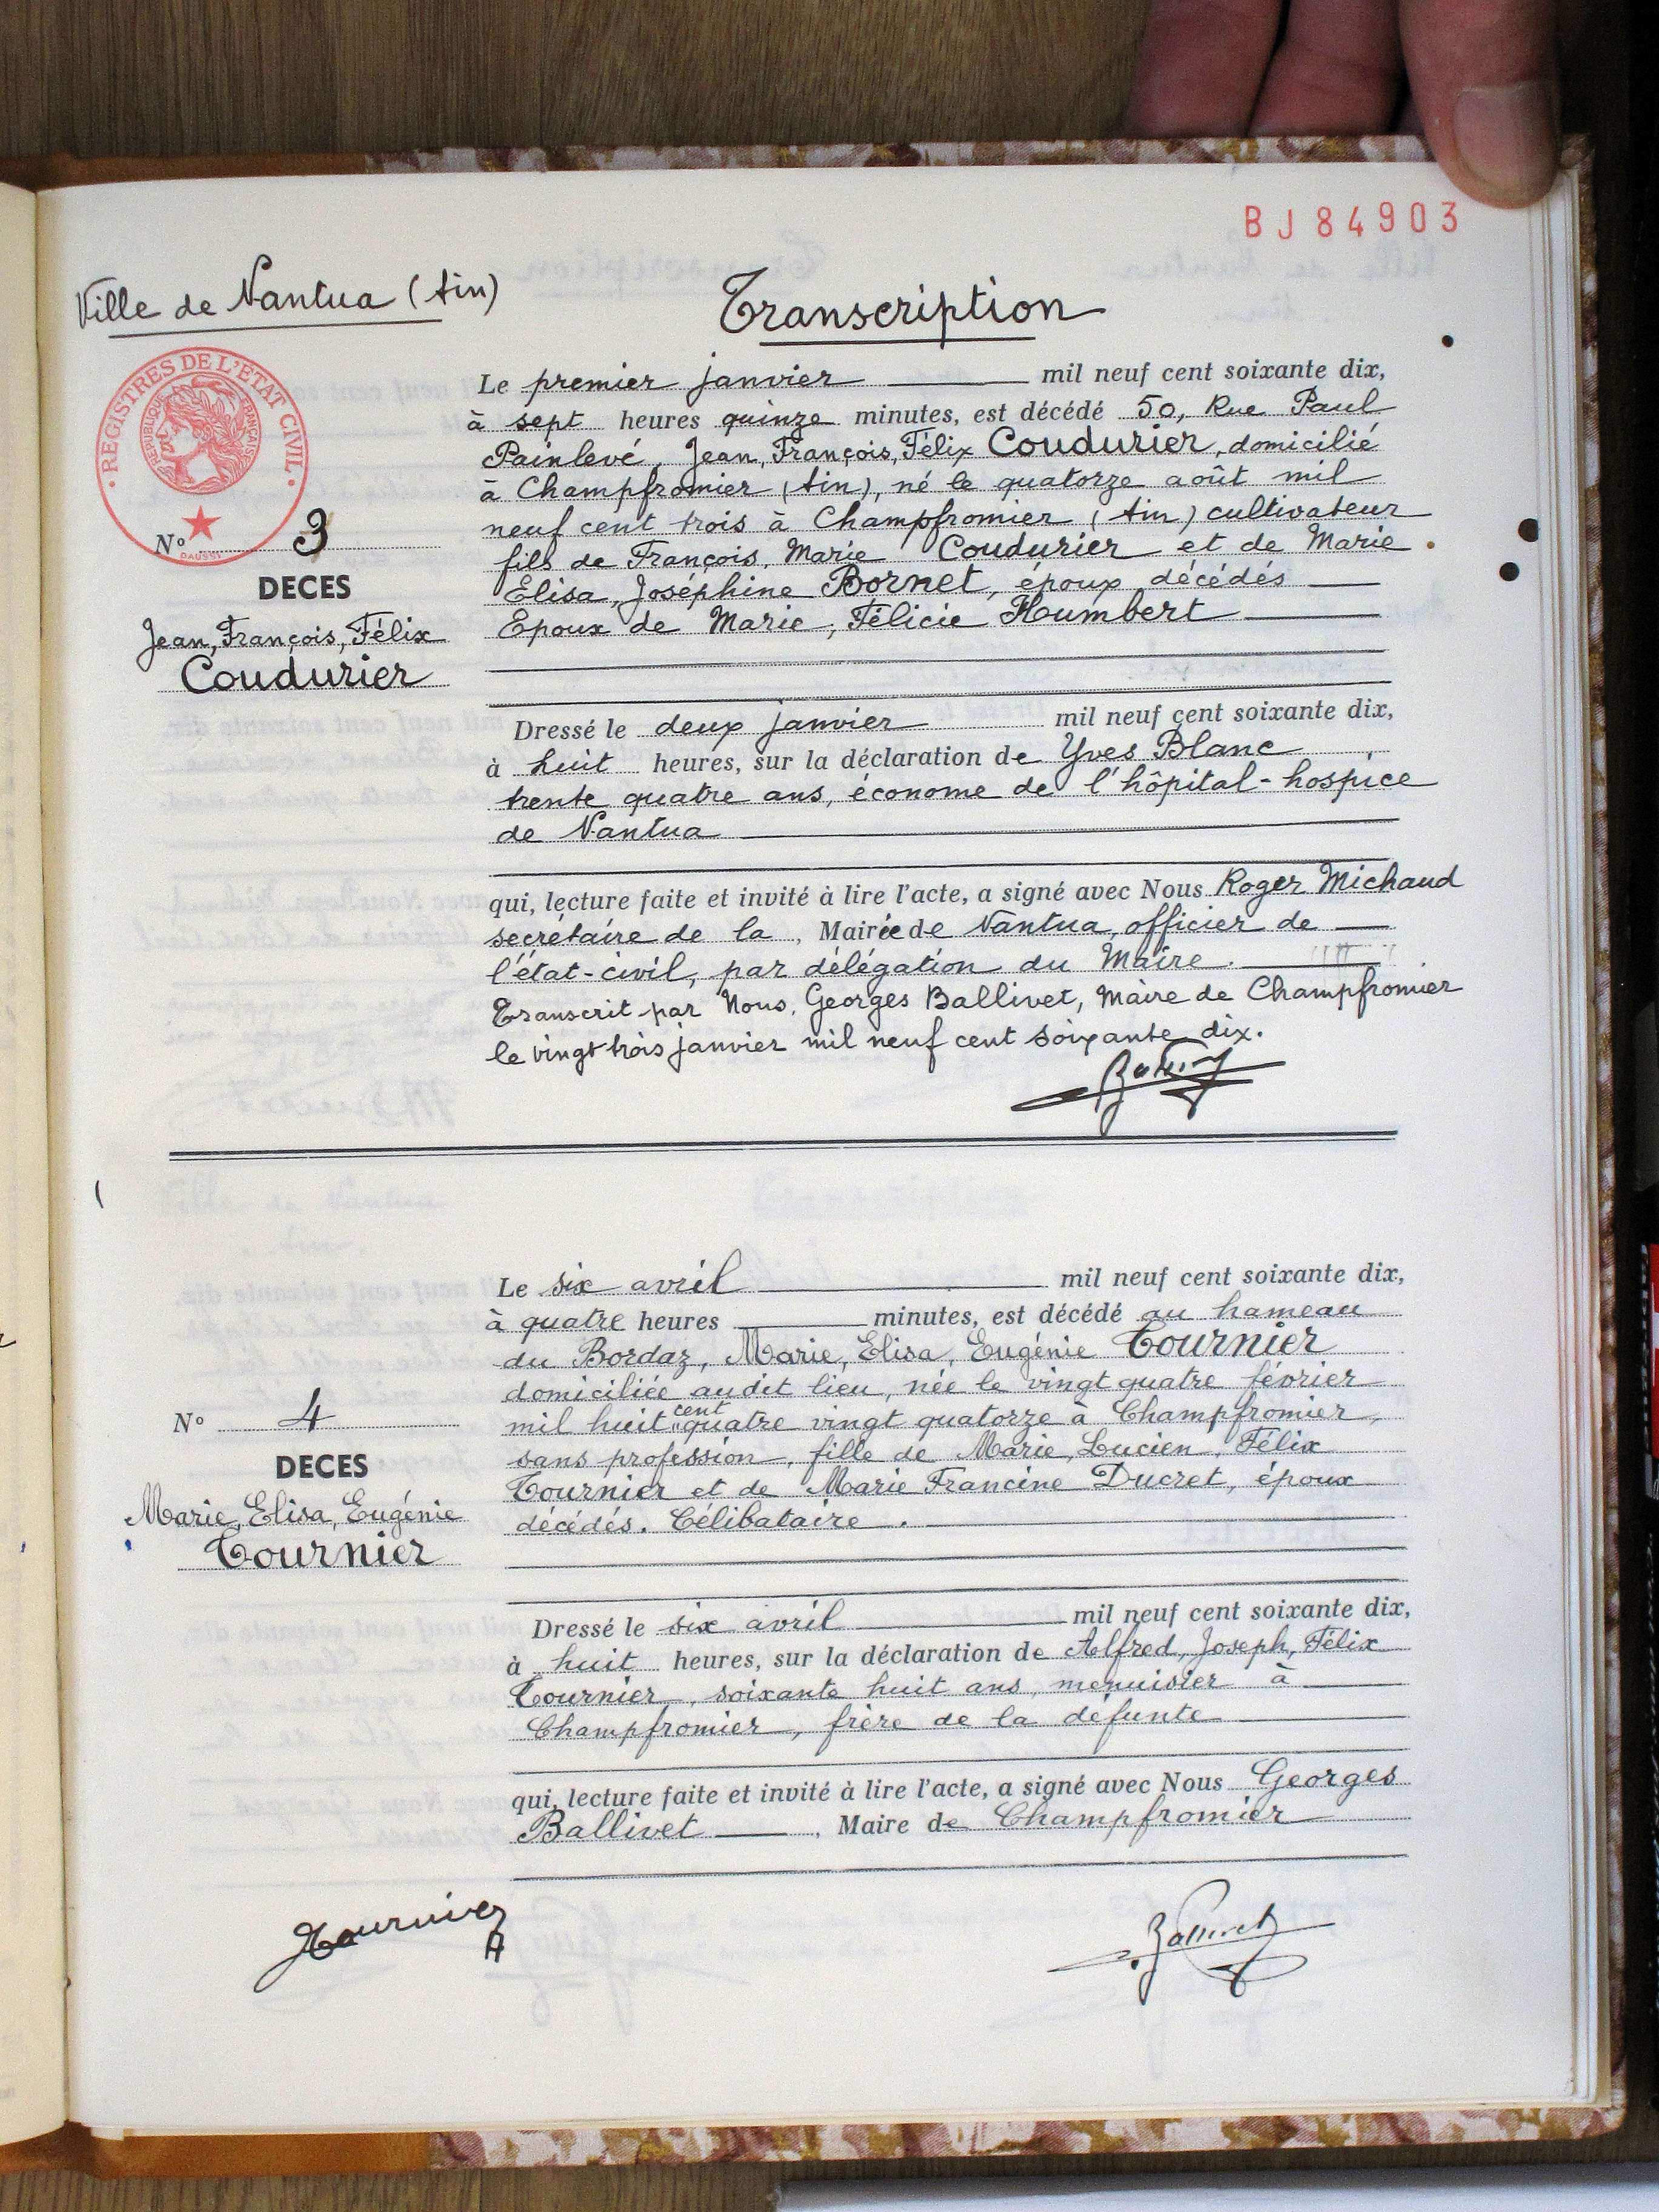 BJ84903
Ville de Nantua (Ain)
Transcription
REGISTRES DE L'ETAT CIVIL
REPUBLIQUE FRANÇAISE
DAUSSY
N° 3
DECES
Jean, François, Félix
Coudurier
Le premier janvier mil neuf cent soixante dix,
à sept heures quinze minutes, est décédé 50, Rue Paul
Painlevé, Jean, François, Félix Coudurier, domicilié
à Champfromier (Ain), né le quatorze août mil
neuf cent trois à Champfromier (Ain) cultivateur
fils de François, Marie Coudurier et de Marie
Elisa, Joséphine Bornet, époux décédés
Epoux de Marie, Félicie Humbert
Dressé le deux janvier mil neuf cent soixante dix,
à huit heures, sur la déclaration de Yves Blanc
trente quatre ans, économe de l'hôpital-hospice
de Nantua
qui, lecture faite et invité à lire l'acte, a signé avec Nous Roger Michaud
secrétaire de la, Mairie de Nantua, officier de
l'état-civil, par délégation du Maire.
Transcrit par Nous, Georges Ballivet, Maire de Champfromier
le vingt trois janvier mil neuf cent soixante dix.
N° 4
DECES
Marie, Elisa, Eugénie
Tournier
Le six avril mil neuf cent soixante dix,
à quatre heures minutes, est décédé au hameau
du Bordaz, Marie, Elisa, Eugénie Tournier
domiciliée audit lieu, née le vingt quatre février
mil huit cent quatre vingt quatorze à Champfromier,
sans profession, fille de Marie, Lucien, Félix
Tournier et de Marie Francine Ducret, époux
décédés. Célibataire.
Dressé le six avril mil neuf cent soixante dix,
à huit heures, sur la déclaration de Alfred, Joseph, Félix
Tournier, soixante huit ans, menuisier à
Champfromier, frère de la défunte
qui, lecture faite et invité à lire l'acte, a signé avec Nous Georges
Ballivet, Maire de Champfromier
Tournier
A
Ballivet